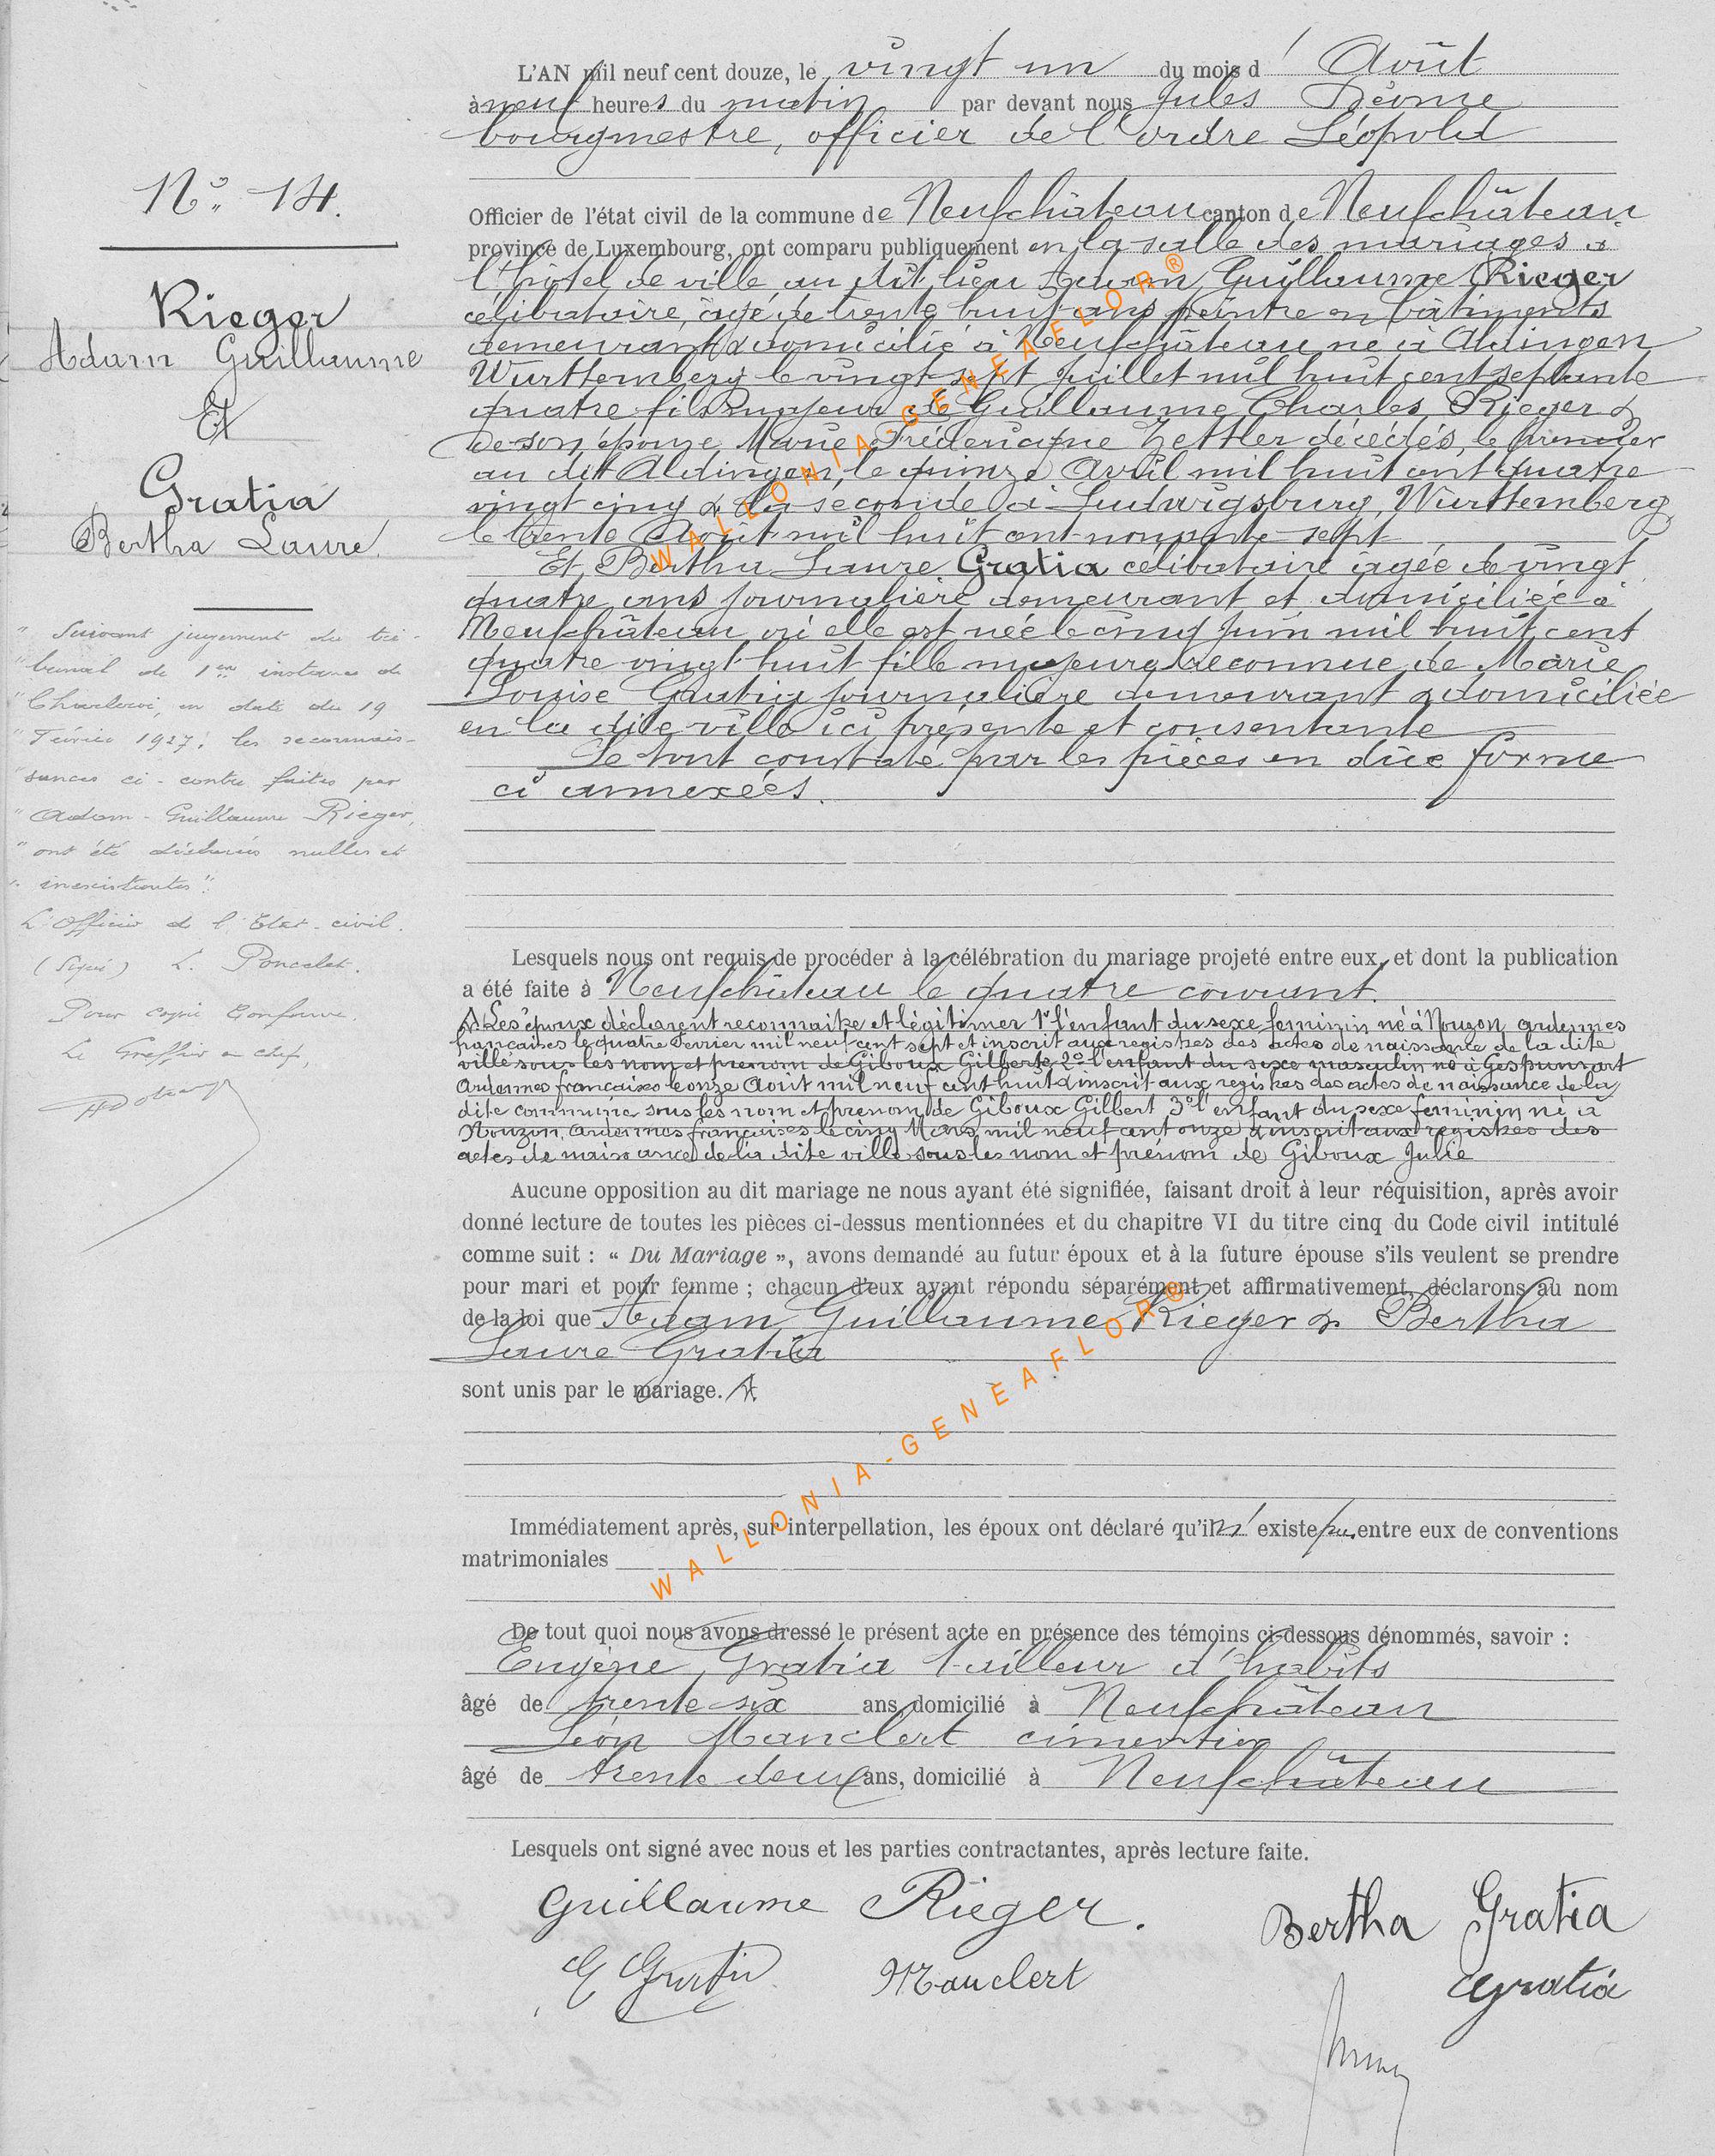 L'AN mil neuf cent douze, le vingt un du mois d' Août
à neuf heures du matin par devant nous Jules
bourgmestre, officier de l'ordre Léopold
N° 14.
Officier de l'état civil de la commune de Neufchâteau canton de Neufchâteau
province de Luxembourg, ont comparu publiquement en la salle des mariages à
l'hôtel de ville au dit lieu Adam Guillaume Rieger
célibataire, âgé de trente huit ans peintre en bâtiments
demeurant & domicilié à Neufchâteau né à Aldingen
Wurttemberg le vingt sept juillet mil huit cent septante
quatre fils majeur de Guillaume Charles Rieger &
de son épouse Marie Fréderique Zettler décédés, le premier
au dit Aldingen, le quinze Avril mil huit cent quatre
vingt cinq & la seconde à Ludwigsburg, Wurttemberg
le trente Août mil huit cent nonante sept
Et Bertha Laure Gratia célibataire âgée de vingt
quatre ans journalière demeurant et domiciliée à
Neufchâteau où elle est née le cinq juin mil huit cent
quatre vingt huit fille majeure reconnue de Marie
Louise Gratia journalière demeurant & domiciliée
en la dite ville ici présente et consentante
Le tout constaté par les pièces en dûe forme
ci annexées.
Rieger
Adam Guillaume
Et
Gratia
Bertha Laure.
" Suivant jugement du tri-
" bunal de 1ère instance de
" Charleroi, en date du 19
" Février 1927, les reconnais-
" sances ci-contre faites par
" Adam-Guillaume Rieger,
" ont été déclarées nulles et
" inexistantes".
L'Officier de l'Etat-civil.
(Signé) L. Poncelet.
Pour copie conforme.
Le Greffier en chef,
Lesquels nous ont requis de procéder à la célébration du mariage projeté entre eux, et dont la publication
a été faite à Neufchâteau le quatre courant.
Les époux déclarent reconnaitre et légitimer 1° l'enfant du sexe feminin né à Nouzon ardennes
françaises le quatre Fevrier mil neuf cent sept et inscrit aux registres des actes de naissance de la dite
ville sous les nom et prenom de Giboux Gilberte 2° l'enfant du sexe masculin né à Gespunsart
Ardennes françaises le onze Août mil neuf cent huit & inscrit aux registres des actes de naissance de la
dite commune sous les nom et prenom de Giboux Gilbert 3° l'enfant du sexe feminin né à
Nouzon Ardennes françaises le cinq Mars mil neuf cent onze & inscrit aux registres des
actes de naissance de la dite ville sous les nom et prénom de Giboux Julie
Aucune opposition au dit mariage ne nous ayant été signifiée, faisant droit à leur réquisition, après avoir
donné lecture de toutes les pièces ci-dessus mentionnées et du chapitre VI du titre cinq du Code civil intitulé
comme suit : « Du Mariage », avons demandé au futur époux et à la future épouse s'ils veulent se prendre
pour mari et pour femme ; chacun d'eux ayant répondu séparément et affirmativement, déclarons au nom
de la loi que Adam Guillaume Rieger & Bertha
Laure Gratia
sont unis par le mariage.
Immédiatement après, sur interpellation, les époux ont déclaré qu'il n'existe pas entre eux de conventions
matrimoniales
De tout quoi nous avons dressé le présent acte en présence des témoins ci-dessous dénommés, savoir :
Eugène Gratia tailleur d'habits
âgé de trente six ans domicilié à Neufchâteau
Léon Manclert cimentier
âgé de trente deux ans, domicilié à Neufchâteau
Lesquels ont signé avec nous et les parties contractantes, après lecture faite.
Guillaume Rieger.
Bertha Gratia
E Gratia
Manclert
Gratia
WALLONIA-GENEAFLOR®
WALLONIA-GENEAFLOR®